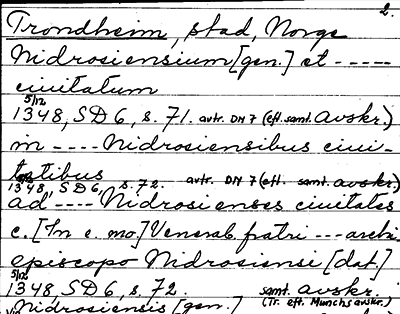 2.
Trondheim, stad, Norge
Nidrosiensium [gen.] et -----
ciuitatum
5/12
1348, SD 6, s. 71. avtr. DN 7 (eft. samt. avskr.)
in ---- Nidrosiensibus ciui-
tatibus
1348, SD 6, s. 72. avtr. DN 7 (eft. samt. avskr.)
ad ---- Nidrosienses ciuitates
c. [In e. mo] Venerab. fratri --- archi-
episcopo Nidrosiensi [dat]
5/12
1348, SD 6, s. 72. samt. avskr.
Nidrosiensis [gen.] (Tr. eft. Munchs avskr.)